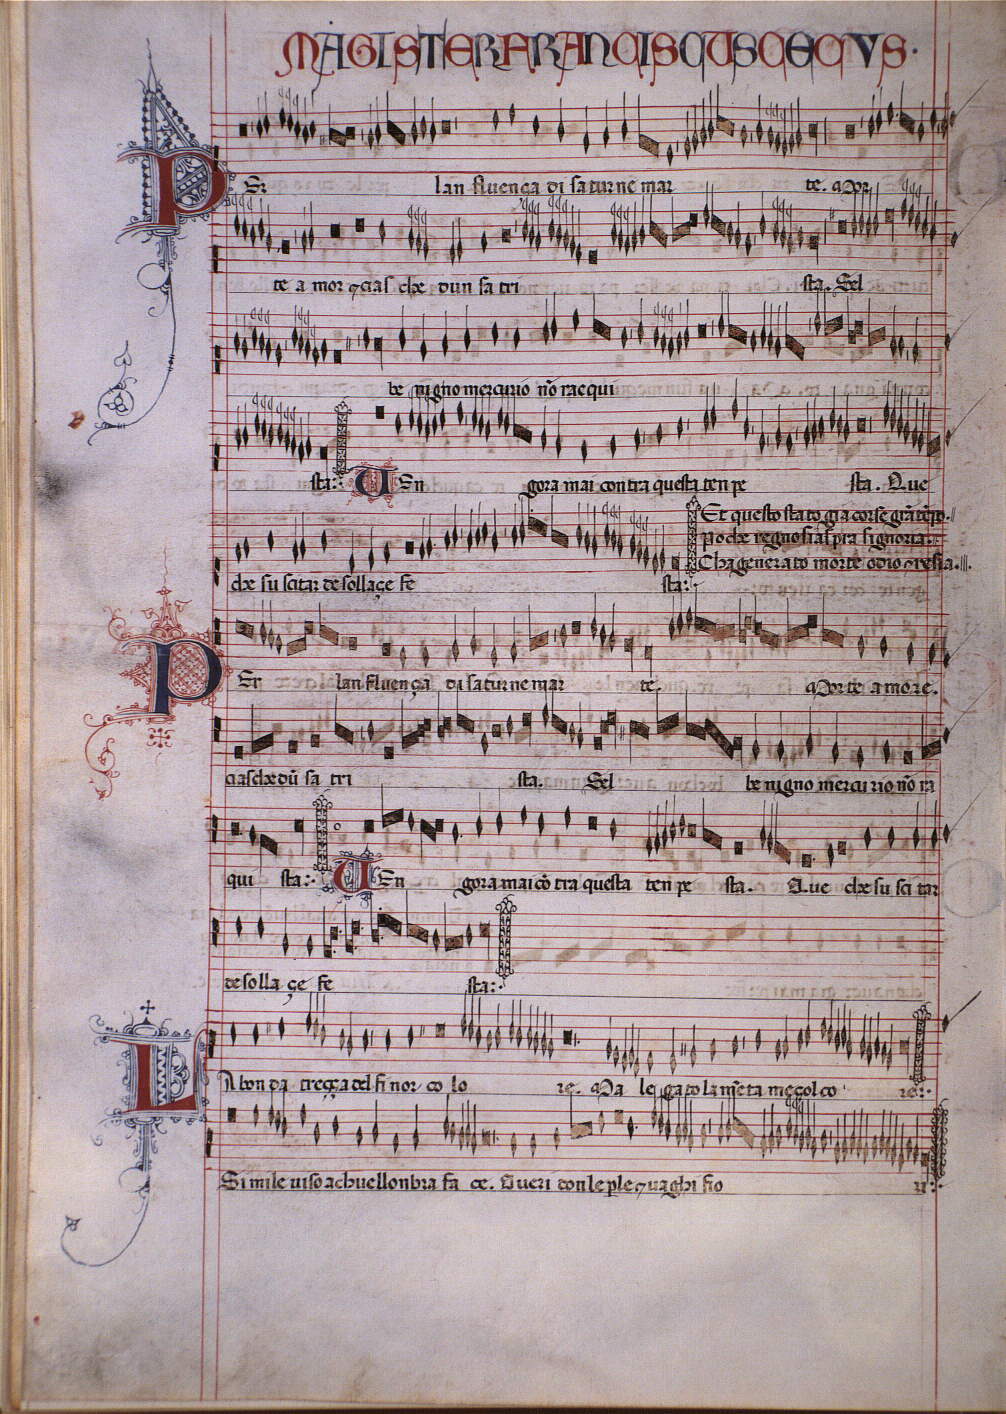 MAGISTER FRANCISCUS CECVS.
PEr lan fluença di saturne mar te. Mor
te a mor ⁊ cias che dun sa tri sta. Sel
be nigno mercurio nō racqui
sta: UEn gora mai contra questa ten pe sta. Que
Et questo stato gia corse
che su scitar de sollaçe fe sta:
Cha generato morte odio ⁊ resia.
PEr lan fluença di saturne mar te. Morte amore.
ciaschedū sa tri sta. Sel be nigno mercu rio nō ra
qui sta: UEn gora mai cō tra questa ten pe sta. Que che su sci tar
de solla çe fe sta:
LA bon da treçça del fi nor co lo re. Ma le gato la mēta meçol co re:
Si mile uiso a chuellonbra fa ce. Dueri con le ple ⁊ uaghi fio ri: